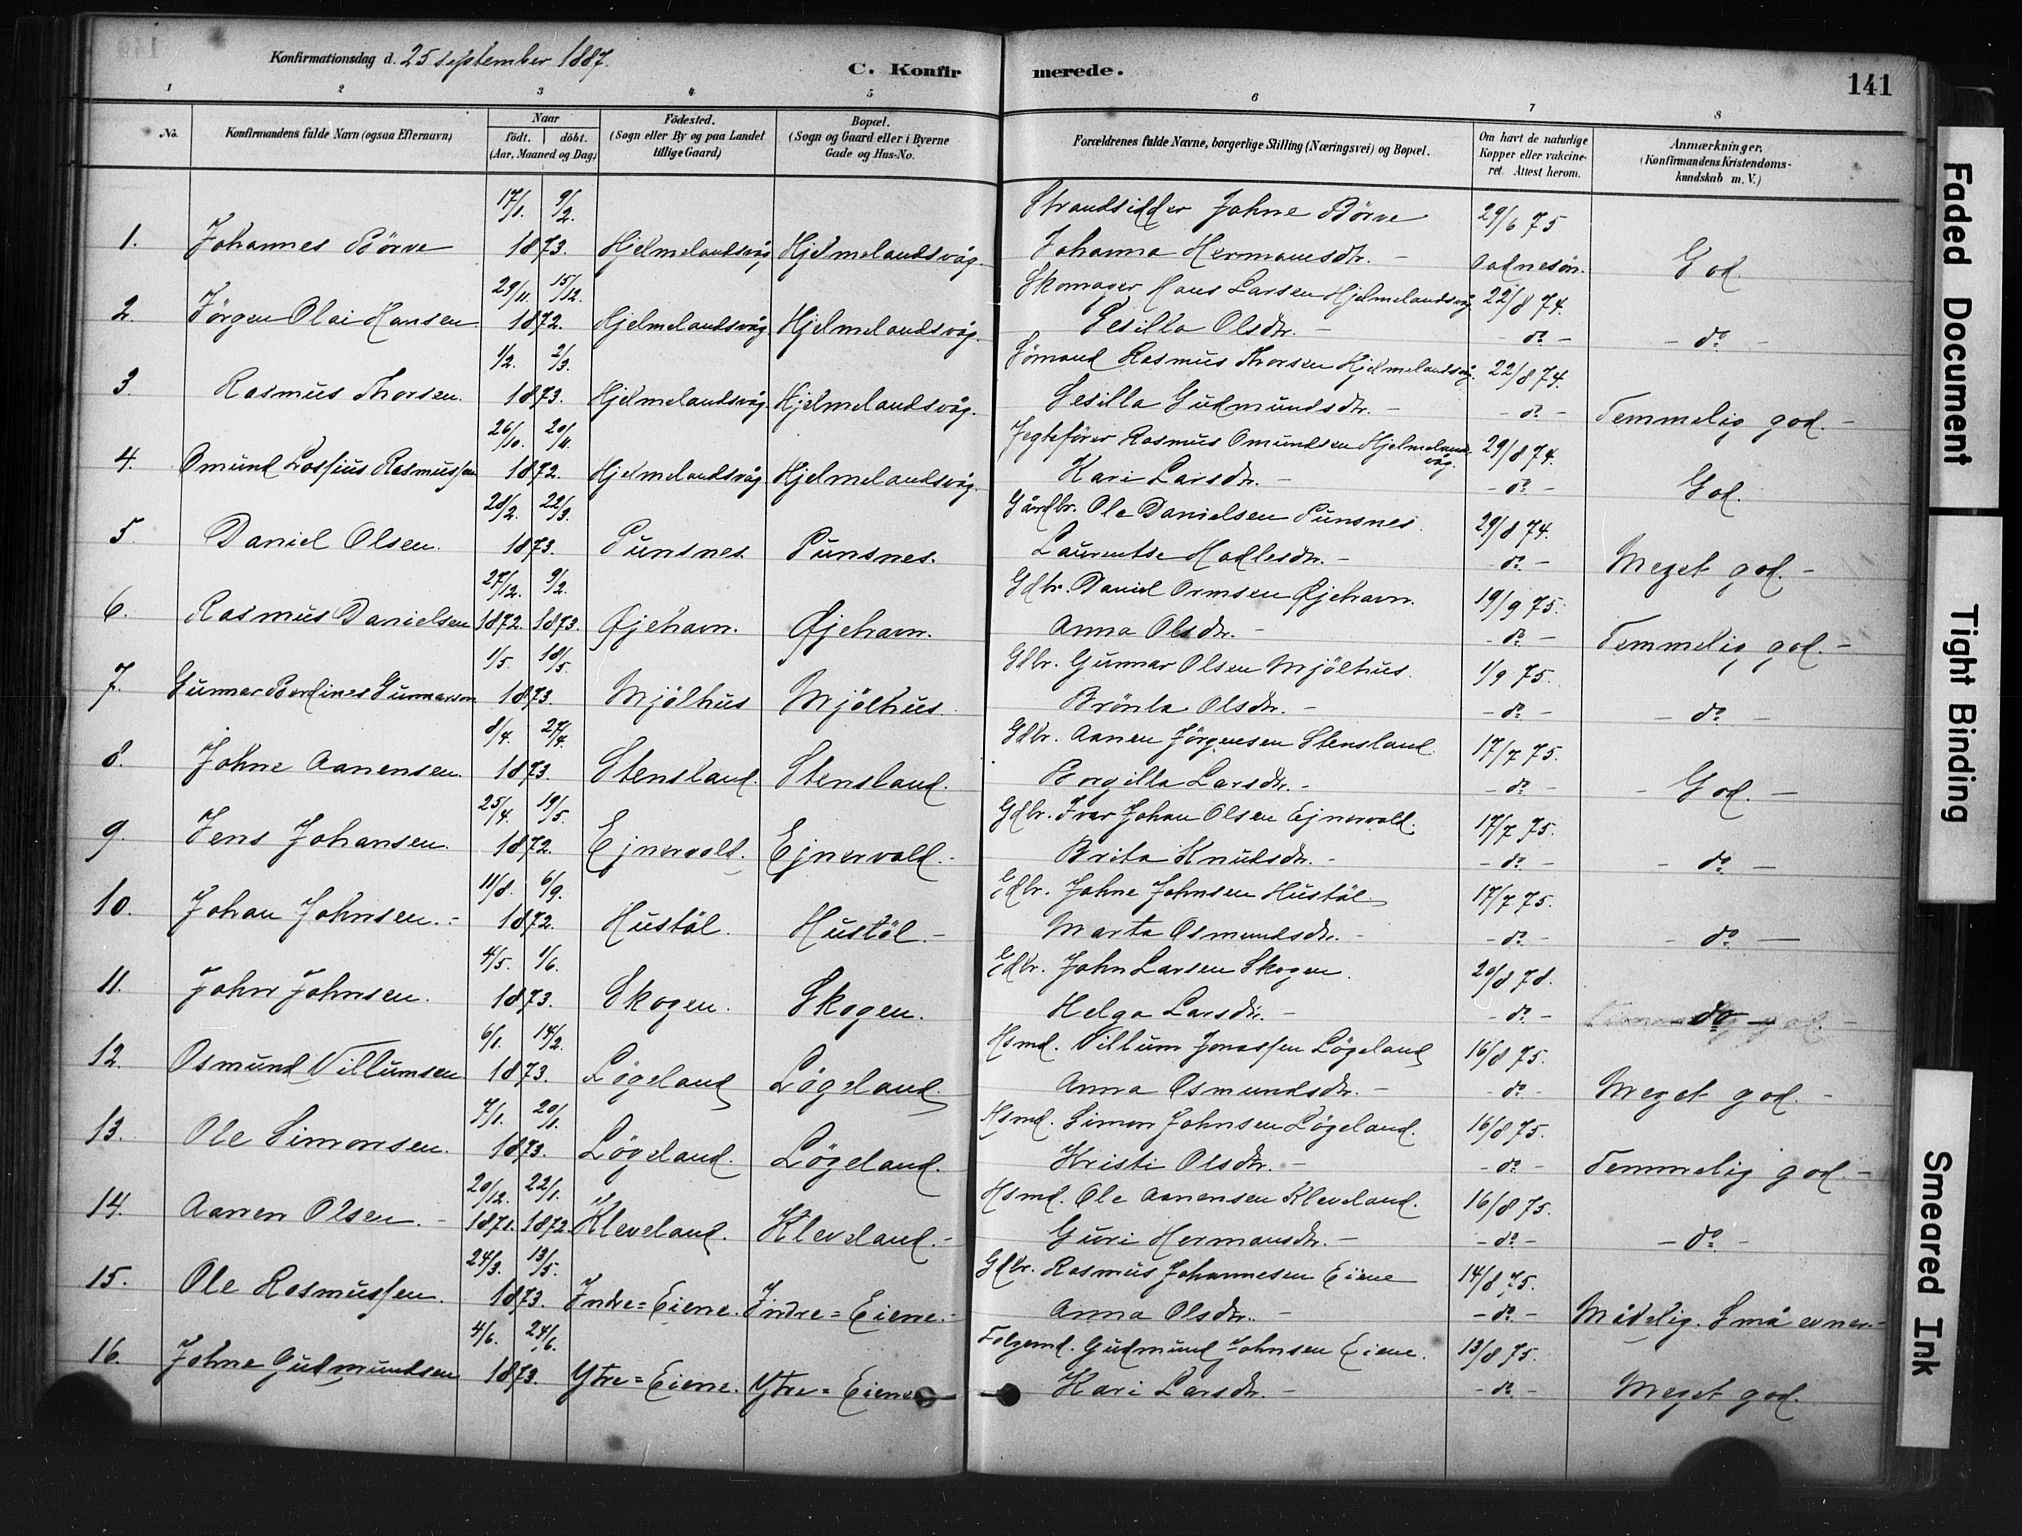 Konfirmationsdag d. 25 september 1887.
C. Konfir merede.
141
1 2 3 4 5 6 7 8
No.
Konfirmandens fulde Navn (ogsaa Efternavn)
Naar
født. døbt.
(Aar, Maaned og Dag)
Fødested.
(Sogn eller By og paa Landet
tillige Gaard)
Bopæl.
(Sogn og Gaard eller i Byerne
Gade og Hus-No.
Forældrenes fulde Navne, borgerlige Stilling (Næringsvei) og Bopæl.
Om havt de naturlige
Kopper eller vakcine-
ret. Attest herom.
Anmærkninger.
(Konfirmandens Kristendoms-
kundskab m. V.)
17/1. 9/2. Strandsidder Johne Børve 29/6 75
1. Johannes Børve 1873. Hjelmelandsvåg Hjelmelandsvåg. Johanna Hermansdtr. - God.
29/11. 15/12. Skomager Hans Larsen Hjelmelandsvåg 22/8 74.
2. Jörgen Olai Hansen 1872. Hjelmelandsvåg Hjelmelandsvåg. Sesilla Olsdtr. - - do - - do -
1/2. 2/3. Sömand Rasmus Thorsen Hjelmelandsvåg. 22/8 74.
3. Rasmus Thorsen. 1873. Hjelmelandsvåg. Hjelmelandsvåg. Sesilla Gudmundsdtr. - - do - Temmelig god. -
26/10. 20/11. Jegtefører Rasmus Omundsen Hjelmelandsvåg. 29/8 74.
4. Omund Lossius Rasmussen 1872. Hjelmelandsvåg Hjelmelandsvåg. Kari Larsdtr. - - do - God.
20/2. 22/3. Gårdbr. Ole Danielsen Punsnes. 29/8 74.
5. Daniel Olsen. 1873. Punsnes. Punsnes. Laurentse Hadlesdtr. - - do - Meget god. -
27/12. 9/2. Gdbr. Daniel Ormsen Øjehavn. 19/9 75.
6. Rasmus Danielsen 1872. 1873. Øjehavn. Øjehavn. Anna Olsdtr. - - do - Temmelig god. -
1/5. 18/5. Gdbr. Gunnar Olsen Mjölhus. 1/9 75.
7. Gunnar Berdines Gunnarsen 1873. Mjölhus Mjölhus. Brönla Olsdtr. - - do - - do -
8/4. 27/4. Gdbr. Aanen Jörgensen Stensland. 17/7 75.
8. Johne Aanensen. 1873. Stensland. Stensland. Borgilla Larsdtr. - - do - - God. -
25/4. 19/5. Gdbr. Ivar Johan Olsen Ejnervold. 17/7 75.
9. Jens Johansen. 1872. Ejnervold. Ejnervold. - Brita Knudsdtr. - - do - - do -
11/8. 6/9. Gdbr. Johne Johnsen Hustöl. 17/7 75.
10. Johan Johnsen. - 1872. Hustöl. Hustöl. - Marta Osmundsdtr. - - do - - do -
4/5. 1/6. Gdbr. John Larsen Skogen. 20/8 78.
11. John Johnsen. 1873. Skogen. Skogen. Helga Larsdtr. - - do - - do -
6/1. 14/2. Hsmd. Villum Jonassen Løgeland 16/8 75.
12. Osmund Villumsen 1873. Løgeland Løgeland. Anna Osmundsdtr. - - do - Meget god. -
7/1. 20/1. Hsmd. Simon Johnsen Løgeland. 16/8 75.
13. Ole Simonsen. 1873. Løgeland. Løgeland. Kristi Olsdtr. - - do - Temmelig god. -
20/12. 22/1. Hsmd. Ole Aanensen Kleveland. 16/8 75.
14. Aanen Olsen. - 1871. 1872. Kleveland. Kleveland. - Guri Hermansdtr. - - do - - do -
24/3. 13/5. Gdbr. Rasmus Johannesen Eiene 14/8 75.
15. Ole Rasmussen. 1873. Indre = Eiene. Indre = Eiene. - Anna Olsdtr. - - do - Mådelig. Små evner. -
4/6. 24/6. Folgemd. Gudmund Johnsen Eiene. 13/8 75.
16. Johne Gudmundsen 1873. Ytre = Eiene. Ytre = Eiene Kari Larsdtr. - - do - Meget god.
Faded Document
Tight Binding
Smeared Ink